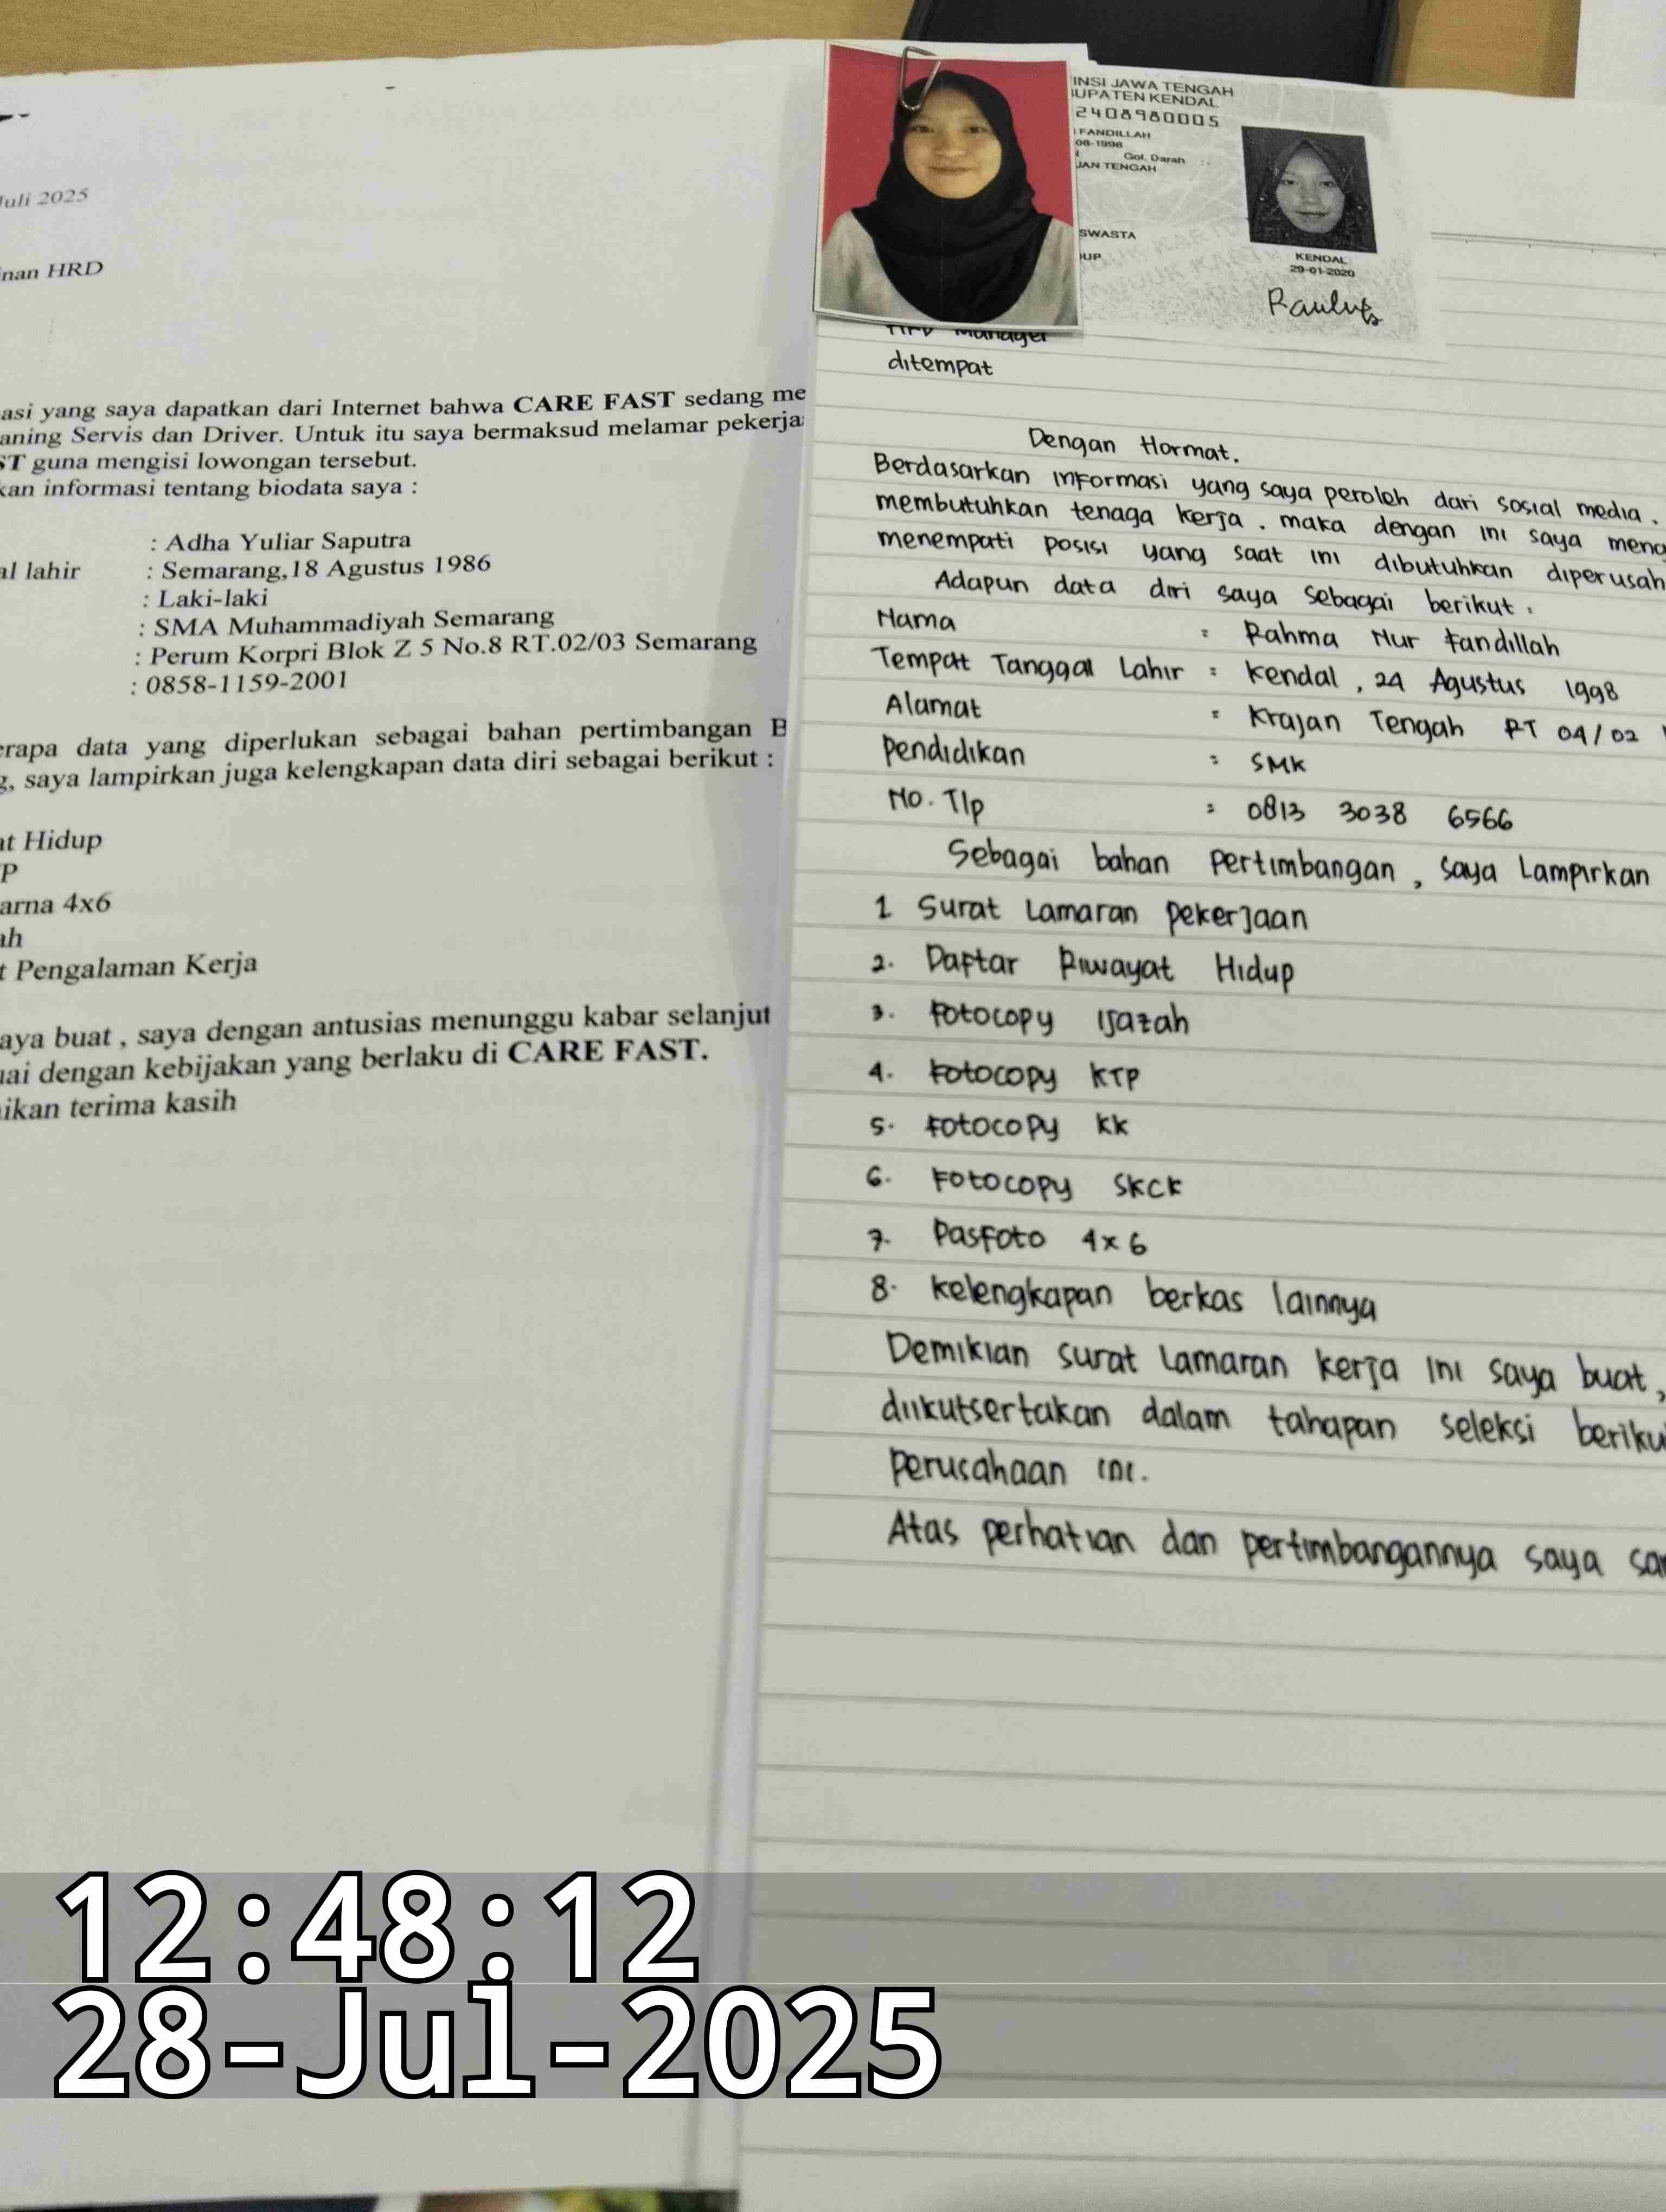 Juli 2025
nan HRD
asi yang saya dapatkan dari Internet bahwa CARE FAST sedang me
aning Servis dan Driver. Untuk itu saya bermaksud melamar pekerja
ST guna mengisi lowongan tersebut.
kan informasi tentang biodata saya :
: Adha Yuliar Saputra
al lahir : Semarang,18 Agustus 1986
: Laki-laki
: SMA Muhammadiyah Semarang
: Perum Korpri Blok Z 5 No.8 RT.02/03 Semarang
: 0858-1159-2001
erapa data yang diperlukan sebagai bahan pertimbangan B
g, saya lampirkan juga kelengkapan data diri sebagai berikut :
at Hidup
P
arna 4x6
ah
t Pengalaman Kerja
aya buat , saya dengan antusias menunggu kabar selanjut
uai dengan kebijakan yang berlaku di CARE FAST.
ikan terima kasih
INSI JAWA TENGAH
UPATEN KENDAL
2408980005
FANDILLAH
08-1998
Gol. Darah :-
JAN TENGAH
SWASTA
UP
KENDAL
29-01-2020
HRD Manager
ditempat
Dengan Hormat.
Berdasarkan informasi yang saya peroleh dari sosial media.
membutuhkan tenaga kerja. maka dengan ini saya meng
menempati posisi yang saat ini dibutuhkan diperusah
Adapun data diri saya sebagai berikut:
Nama : Rahma Nur Fandillah
Tempat Tanggal Lahir : Kendal, 24 Agustus 1998
Alamat : Krajan Tengah RT 04/02
Pendidikan : SMK
No. Tlp : 0813 3038 6566
Sebagai bahan pertimbangan, saya Lampirkan
1 Surat Lamaran pekerjaan
2. Daftar Riwayat Hidup
3. Fotocopy Ijazah
4. Fotocopy KTP
5. Fotocopy KK
6. Fotocopy SKCK
7. Pasfoto 4x6
8. Kelengkapan berkas lainnya
Demikian surat lamaran kerja ini saya buat,
diikutsertakan dalam tahapan seleksi beriku
perusahaan ini.
Atas perhatian dan pertimbangannya saya sa
12:48:12
28-Jul-2025